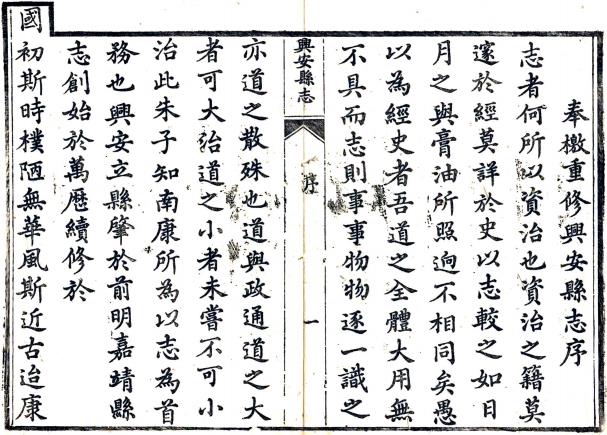 奉檄重修興安縣志序
志者何所以資治也資治之籍莫
邃於經莫詳於史以志較之如日
月之與膏油所照逈不相同矣愚
以為經史者吾道之全體大用無
不具而志則事事物物逐一識之
興安縣志
序
一
亦道之散殊也道與政通道之大
者可大治道之小者未嘗不可小
治此朱子知南康所為以志為首
務也興安立縣肇於前明嘉靖縣
志創始於萬歷續修於
國初斯時樸陋無華風斯近古迨康